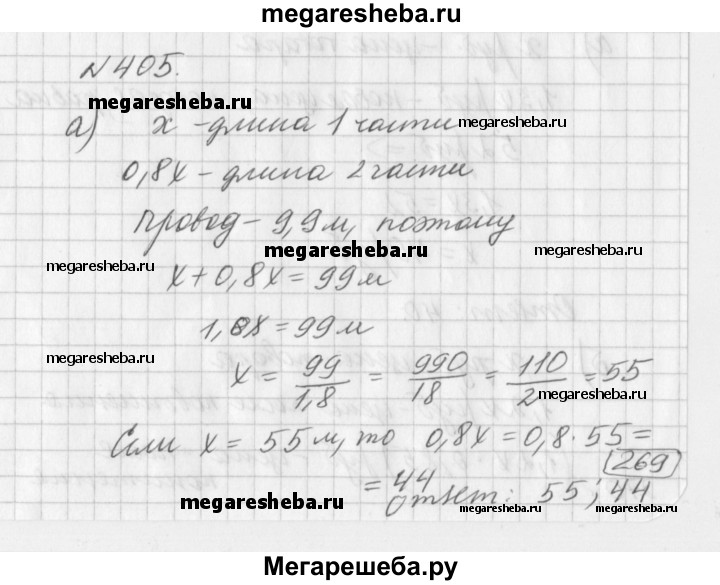 megaresheba.ru
№405.
megaresheba.ru
а) x - длина 1 части
megaresheba.ru
0,8x - длина 2 части
Провод - 9,9м, поэтому
megaresheba.ru
megaresheba.ru
megaresheba.ru
x + 0,8x = 99м
1,8x = 99м
megaresheba.ru
megaresheba.ru
megaresheba.ru
x = 99/1,8 = 990/18 = 110/2 = 55
megaresheba.ru
Если x = 55м, то 0,8x = 0,8 · 55 =
269
= 44
Ответ: 55; 44
megaresheba.ru
megaresheba.ru
megaresheba.ru
Мегарешеба.ру